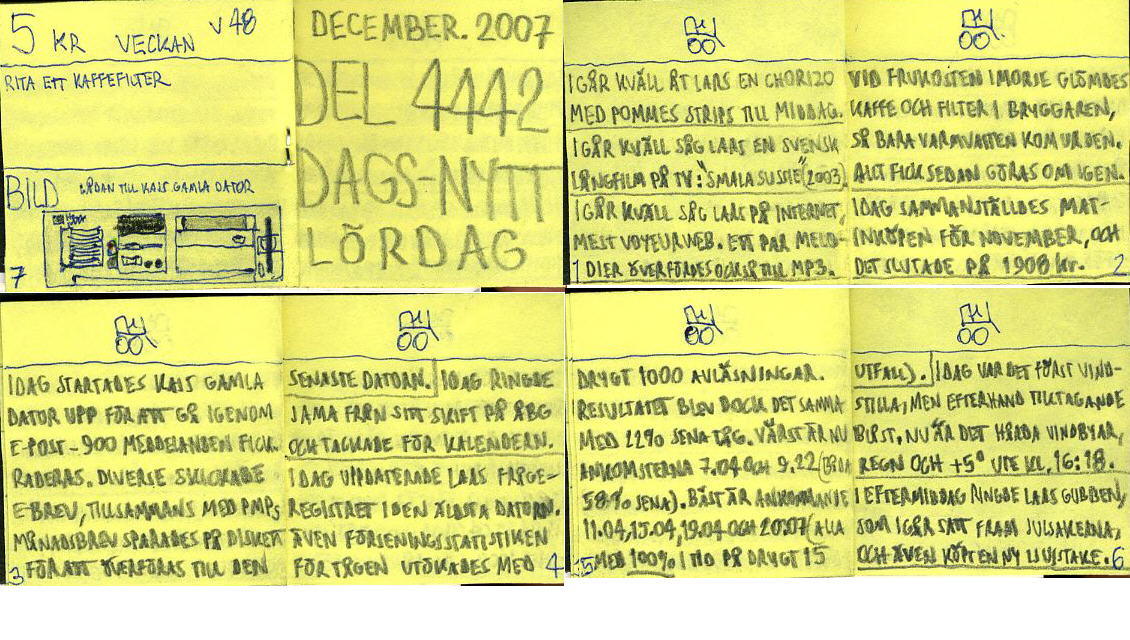 5 KR VECKAN V 48
RITA ETT KAFFEFILTER
BILD LÅDAN TILL KAIS GAMLA DATOR
7
DECEMBER. 2007
DEL 4442
DAGS-NYTT
LÖRDAG
I GÅR KVÄLL ÅT LARS EN CHORIZO
MED POMMES STRIPS TILL MIDDAG.
I GÅR KVÄLL SÅG LARS EN SVENSK
LÅNGFILM PÅ TV: "SMALA SUSSIE" (2003)
I GÅR KVÄLL SÅG LARS PÅ INTERNET,
MEST VOYEURWEB. ETT PAR MELO-
1 DIER ÖVERFÖRDES OCKSÅ TILL MP3.
VID FRUKOSTEN I MORSE GLÖMDES
KAFFE OCH FILTER I BRYGGAREN,
SÅ BARA VARMVATTEN KOM UR DEN.
ALLT FICK SEDAN GÖRAS OM IGEN.
IDAG SAMMANSTÄLLDES MAT-
INKÖPEN FÖR NOVEMBER, OCH
DET SLUTADE PÅ 1908 kr. 2
IDAG STARTADES KAIS GAMLA
DATOR UPP FÖR ATT GÅ IGENOM
E-POST - 900 MEDDELANDEN FICK
RADERAS. DIVERSE SKICKADE
E-BREV, TILLSAMMANS MED PMPs
MÅNADSBREV SPARADES PÅ DISKETT
3 FÖR ATT ÖVERFÖRAS TILL DEN
SENASTE DATORN. IDAG RINGDE
JAMA FRÅN SITT SKIFT PÅ ÅBG
OCH TACKADE FÖR KALENDERN.
IDAG UPPDATERADE LARS FÄRGE-
REGISTRET I DEN ÄLDSTA DATORN.
ÄVEN FÖRSENINGSSTATISTIKEN
FÖR TÅGEN UTÖKADES MED 4
DRYGT 1000 AVLÄSNINGAR.
RESULTATET BLEV DOCK DET SAMMA
MED 22% SENA TÅG. VÄRST ÄR NU
ANKOMSTERNA 7.04 OCH 9.22 (BÅDA
58% SENA). BÄST ÄR ANKOMMANDE
11.04, 13.04, 19.04 OCH 20.07 (ALLA
5 MED 100% I TID PÅ DRYGT 15
UTFALL). IDAG VAR DET FÖRST VIND-
STILLA, MEN EFTERHAND TILLTAGANDE
BLÅST, NU ÄR DET HÅRDA VINDBYAR,
REGN OCH +5° UTE KL. 16:18.
I EFTERMIDDAG RINGDE LARS GUBBEN,
SOM IGÅR SATT FRAM JULSAKERNA,
OCH ÄVEN KÖPT EN NY LJUSSTAKE. 6